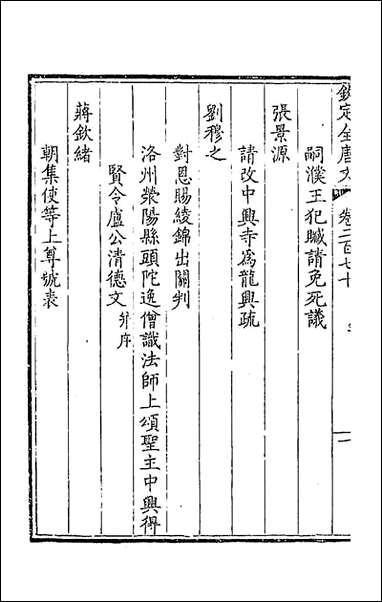 欽定全唐文 卷二百七十
嗣濮王犯贓請免死議
張景源
請改中興寺為龍興疏
劉穆之
對恩賜綾錦出關判
洛州滎陽縣頭陀逸僧識法師上頌聖主中興得
賢令盧公清德文 并序
蔣欽緒
朝集使等上尊號表